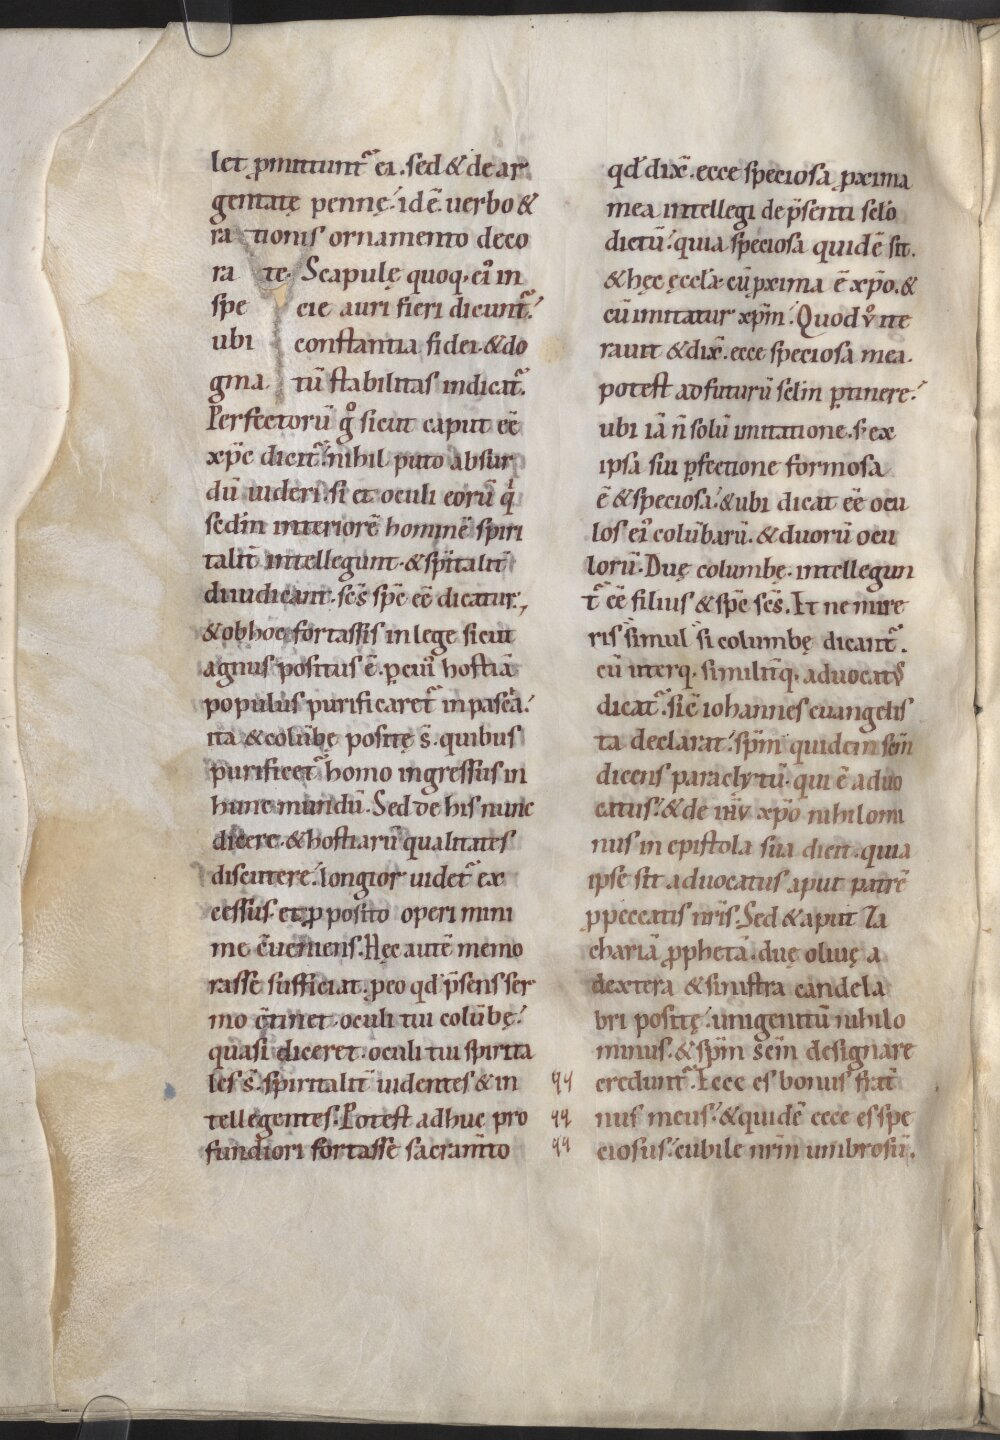 let ꝓmittunt᷑ ei. sed & de ar
gentatę pennę. idē. uerbo &
rationis ornamento deco
rate. Scapulę quoq. ei᷑ in
specie auri fieri dicunt᷑.
ubi constantia fidei. & do
gmatū stabilitas indicat᷑.
Perfectorū gͦ sicut caput eē
xp̄c dicit᷑. nihil puto absur
dū uideri. si et oculi eorū qͥ
sedm̄ interiorē hominē spiri
talit̄ intellegunt. & sp̄italit̄
diiudicant. sc̄s sp̄c eē dicatur,
& ob hoc fortassis in lege sicut
agnus positus ē. ꝑ cui᷑ hostiā
populus purificaret᷑ in pascā.
ita & colūbę positę s̄. quibus
purificet᷑ homo ingressus in
hunc mundū. Sed de his nunc
dicere. & hostiarū qualitates
discutere. longior uidet᷑ ex
cessus. et ꝓposito operi mini
me c̄ueniens. Hęc autē memo
rasse sufficiat. ꝑ eo qd̄ p̄sens ser
mo c̄tinet. oculi tui colūbę.
quasi diceret. oculi tui spirita
les s̄. spiritalit̄ uidentes & in
tellegentes. Potest adhuc pro
fundiori fortasse sacram̄to
qd̄ dix̄. ecce speciosa ꝓxima
mea intellegi de p̄senti sc̄lo
dictū. quia speciosa quidē sit.
& hęc ęccl̄a. cū ꝓxima ē xp̄o. &
cū imitatur xp̄m. Quod vͦ ite
rauit & dix̄. ecce speciosa mea.
potest ad futurū sc̄lm ꝑtinere.
ubi iā n̄ solū imitatione. s; ex
ipsa sui ꝑfectione formosa
ē & speciosa. & ubi dicat eē ocu
los ei᷑ colūbarū. & duorū ocu
lorū. Duę columbę. intellegun
t᷑ eē filius & sp̄c sc̄s. Et ne mire
ris simul si columbę dicant᷑.
cū uterq. similit̄q. aduocatꝰ
dicat᷑. sic̄ iohannes euangelis
ta declarat. sp̄m quidem sc̄m
dicens paraclytū. qui ē aduo
catus. & de ih̄v xp̄o nihilomi
nus in epistola sua dicit. quia
ipse sit aduocatus aput patrē
ꝓ peccatis nr̄is. Sed & aput Za
chariā ꝓphetā. duę oliuę a
dextera & sinistra candela
bri positę. unigenitū nihilo
minus. & sp̄m sc̄m designare
creduntᷣ. Ecce es bonus frat̄
nus meus. & quidē ecce es spe
ciosus. cubile nr̄m umbrosū.